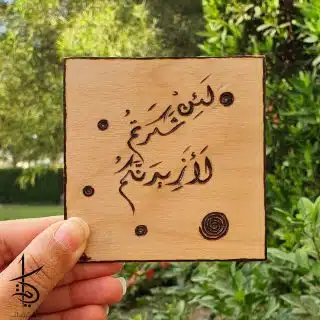 لَئِنْ شَكَرتُم
لَأَزِيدَنَّكُم